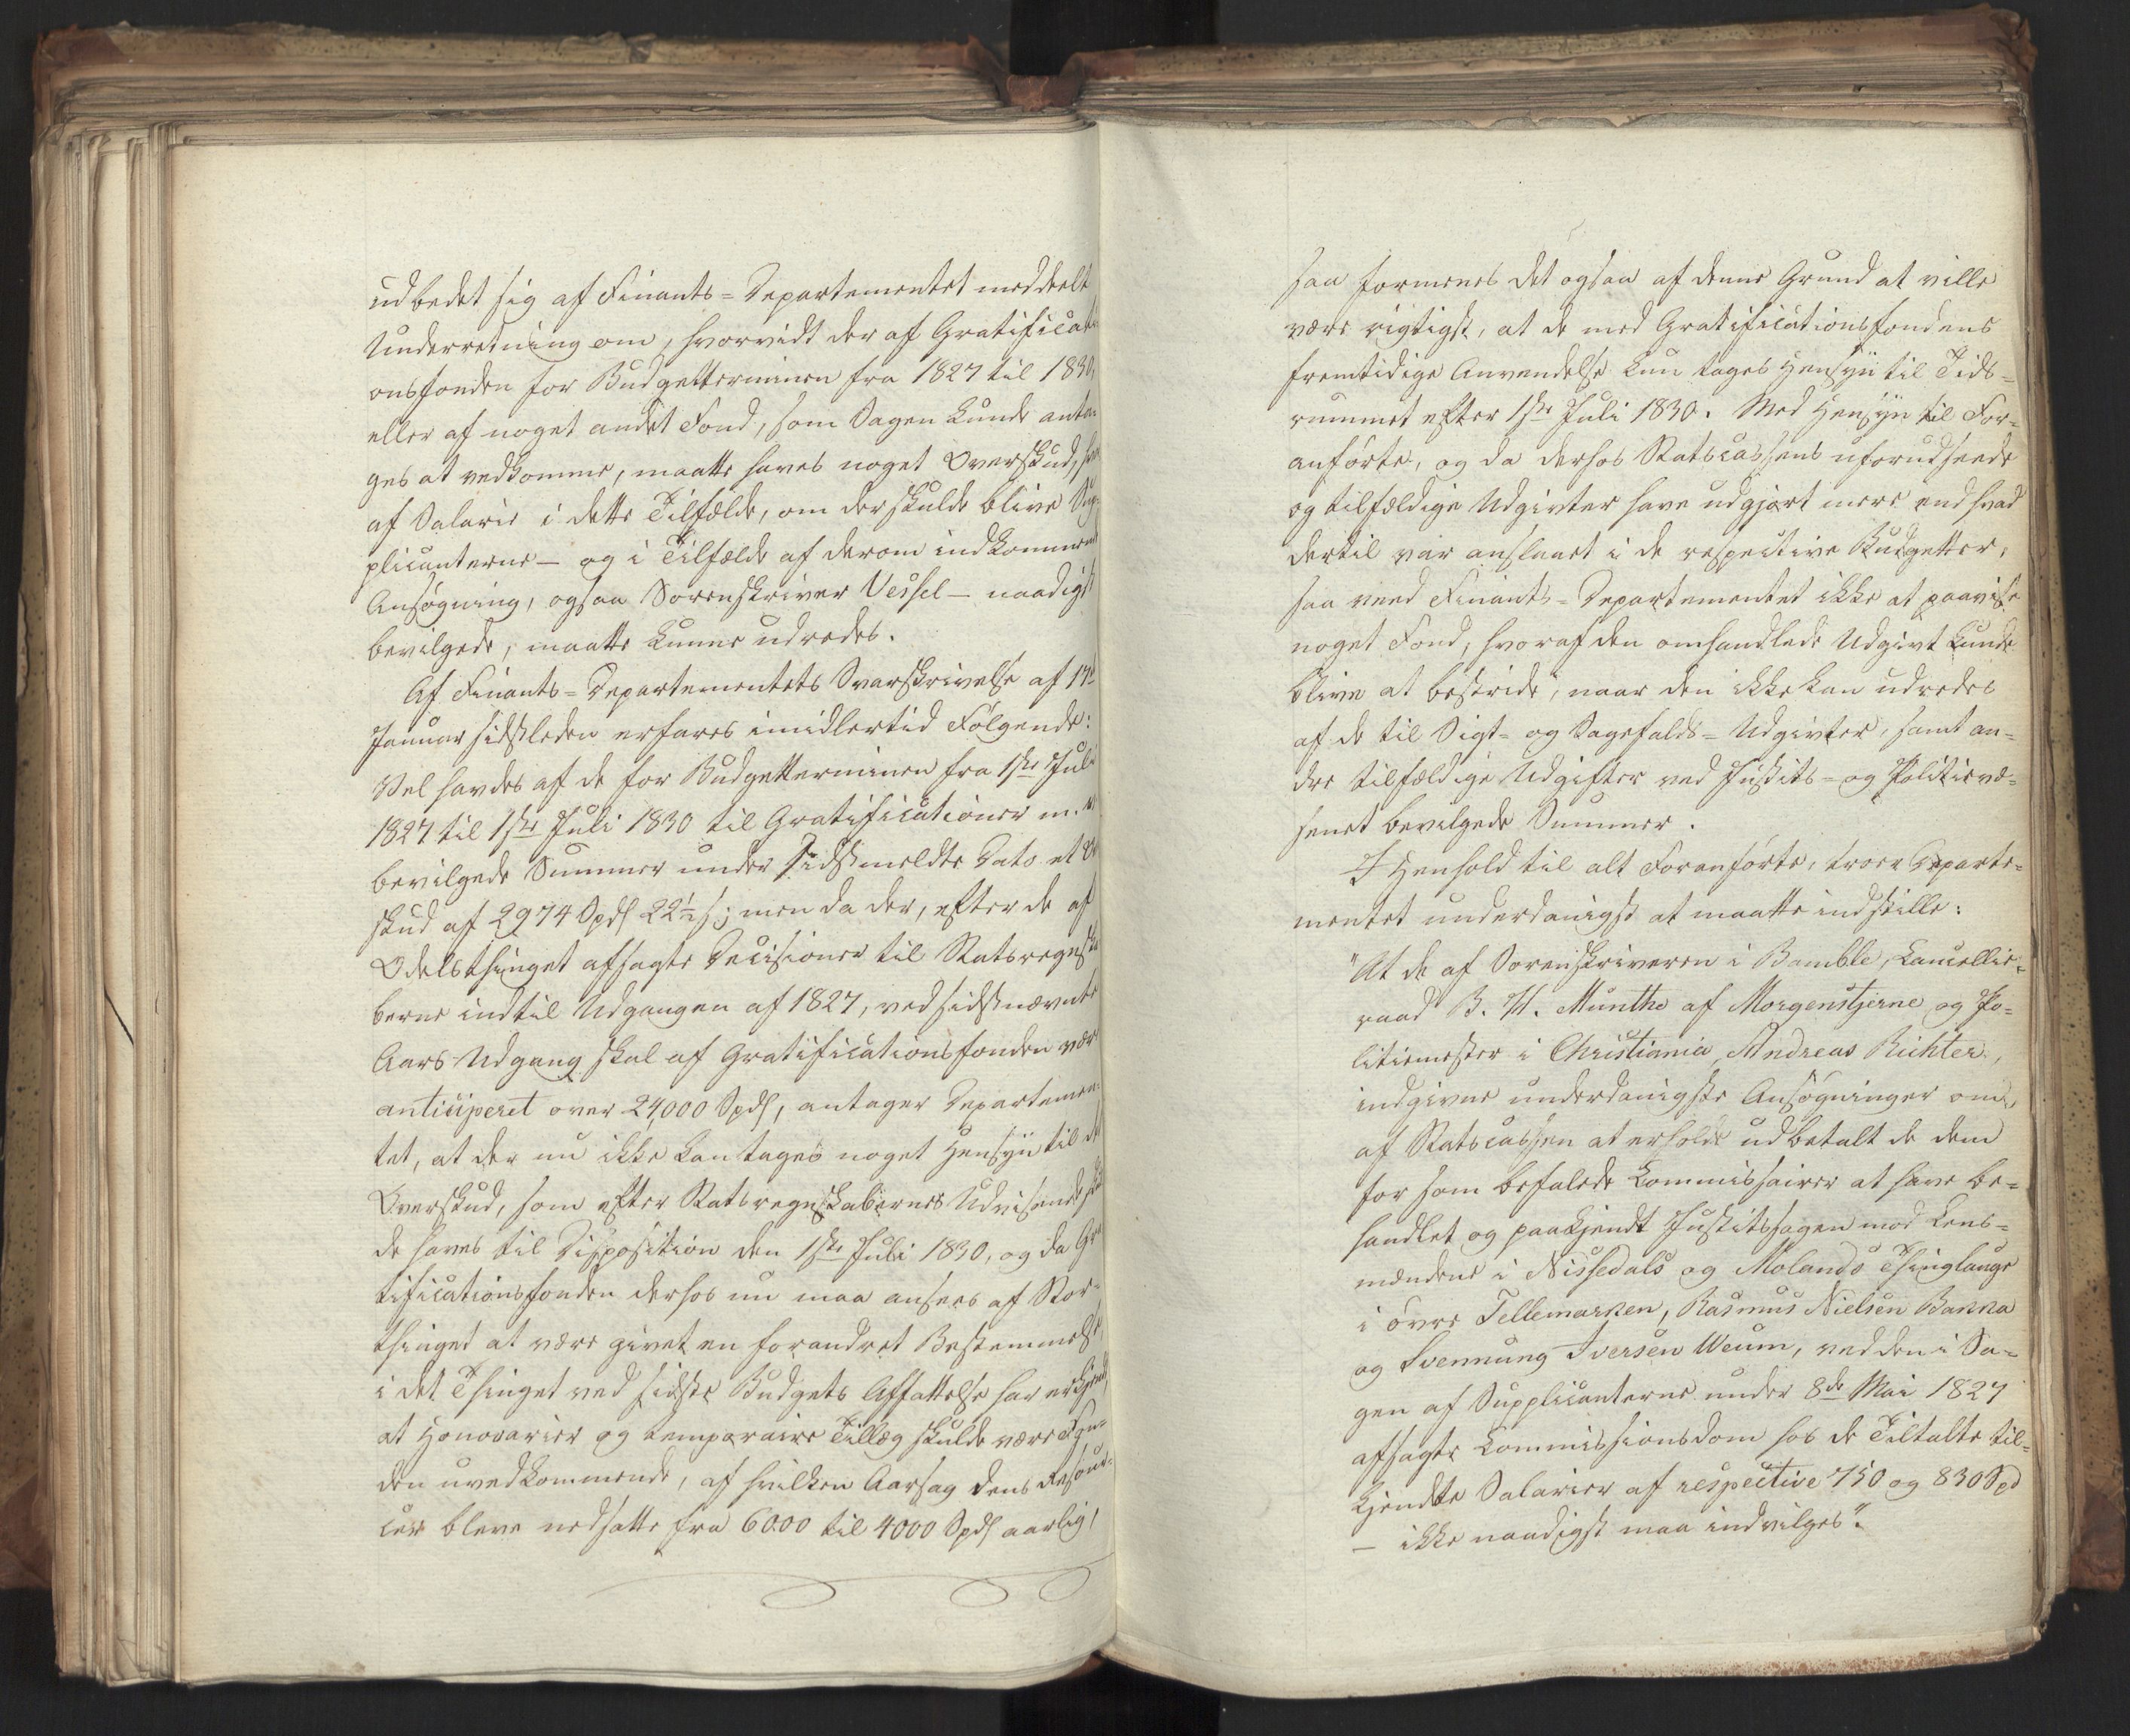 udbedet sig af Finants-Departementet meddeelt
Underretning om, hvorvidt der af Gratificati
onsfonden for Budgetterminen fra 1827 til 1830,
eller af noget andet Fond, som Sagen kunde anta-
ges at vedkomme, maatte haves noget Overskud, hvor
af Salarie i dette Tilfælde, om der skulde blive Sup-
plicanterne – og i Tilfælde af derom indkommen
Ansøgning, ogsaa Sorenskriver Vessel – naadigst
bevilgede, maatte kunne udredes.
Af Finants-Departementets Svarskrivelse af 17de
Januar sidstleden erfares imidlertid Følgende:
Vel havdes af de for Budgetterminen fra 1ste Juli
1827 til 1ste Juli 1830 til Gratificationer m. v.
bevilgede Summer under sidstmeldte Dato et Over
skud af 2974 Spdl 22½ s; men da der, efter de af
Odelsthinget afsagte Decisioner til Statsregnska
berne indtil Udgangen af 1827, ved sidstnævnte
Aars Udgang skal af Gratificationsfonden være
anticiperet over 24,000 Spdl, antager Departemen-
tet, at der nu ikke kan tages noget Hensyn til det
Overskud, som efter Statsregnskabernes Udvisende skul
de haves til Disposition den 1ste Juli 1830, og da Gra
tificationsfonden derhos nu maa ansees af Stor-
thinget at være givet en forandret Bestemmelse
i det Thinget ved sidste Budgets Affattelse har erkjendt,
at Honorarier og temporaire Tillæg skulde være Fon-
den uvedkommende, af hvilken Aarsag dens Resour-
cer bleve nedsatte fra 6000 til 4000 Spdl aarlig,
saa formenes det ogsaa af denne Grund at ville
være rigtigst, at de med Gratificationsfondens
fremtidige Anvendelse kun tages Hensyn til Tids-
rummet efter 1ste Juli 1830. Med Hensyn til For-
anførte, og da derhos Statscassens uforudseede
og tilfældige Udgivter have udgjort mere end hvad
dertil var anslaaet i de respective Budgetter,
saa veed Finants-Departementet ikke at paavise
noget Fond, hvoraf den omhandlede Udgivt kunde
blive at bestride, naar den ikke kan udredes
af de til Sigt- og Sagefalds-Udgivter, samt an-
dre tilfældige Udgifter ved Justits- og Politievæ-
senet bevilgede Summer.
I Henhold til alt Foranførte, troer Departe-
mentet underdanigst at maatte indstille:
"At de af Sorenskriveren i Bamble, Cancellie-
raad B. H. Munthe af Morgenstjerne og Po-
litiemester i Christiania, Andreas Richter,
indgivne underdanigste Ansøgninger om,
af Statscassen at erholde udbetalt de dem
for som befalede Commissairer at have be-
handlet og paakjendt Justitssagen mod Lens-
mændene i Nissedals og Molands Thinglauge
i øvre Tellemarken, Rasmus Nielsen Bakka
og Svennung Iversen Weum, ved den i Sa-
gen af Supplicanterne under 8de Mai 1827
afsagte Commissionsdom hos de Tiltalte til-
kjendte Salarier af respective 750 og 830 Spd
– ikke naadigst maa indvilges".